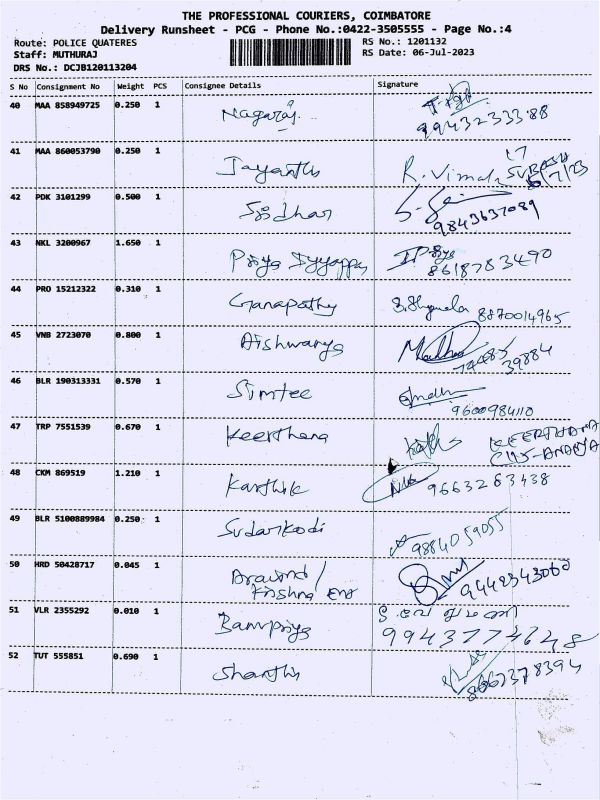 THE PROFESSIONAL COURIERS, COIMBATORE
Delivery Runsheet - PCG - Phone No.:0422-3505555 - Page No.:4
Route: POLICE QUATERES
RS No.: 1201132
Staff: MUTHURAJ
RS Date: 06-Jul-2023
DRS No.: DCJB120113204
S No Consignment No Weight PCS Consignee Details Signature
40 MAA 858949725 0.250 1 Nagaraj
9943233388
41 MAA 860053790 0.250 1 Jayanthi R. Vimala
42 PDK 3101299 0.500 1 Sridhar
9843637089
43 NKL 3200967 1.650 1 Priya Iyyappan
8618783490
44 PRO 15212322 0.310 1 Ganapathy S.Shyamala 8870014965
45 VNB 2723070 0.800 1 Aishwarya
46 BLR 190313331 0.570 1
9600984110
47 TRP 7551539 0.670 1 Keerthana KEERTHANA
48 CKM 869519 1.210 1 Karthik 9663263438
49 BLR 5100889984 0.250 1 Sudarkodi
9884059055
50 HRD 50428717 0.045 1 Aravind/
Krishna Ent 9442343060
51 VLR 2355292 0.010 1 Banupriya
9943774648
52 TUT 555851 0.690 1 Shanthi
8667378394